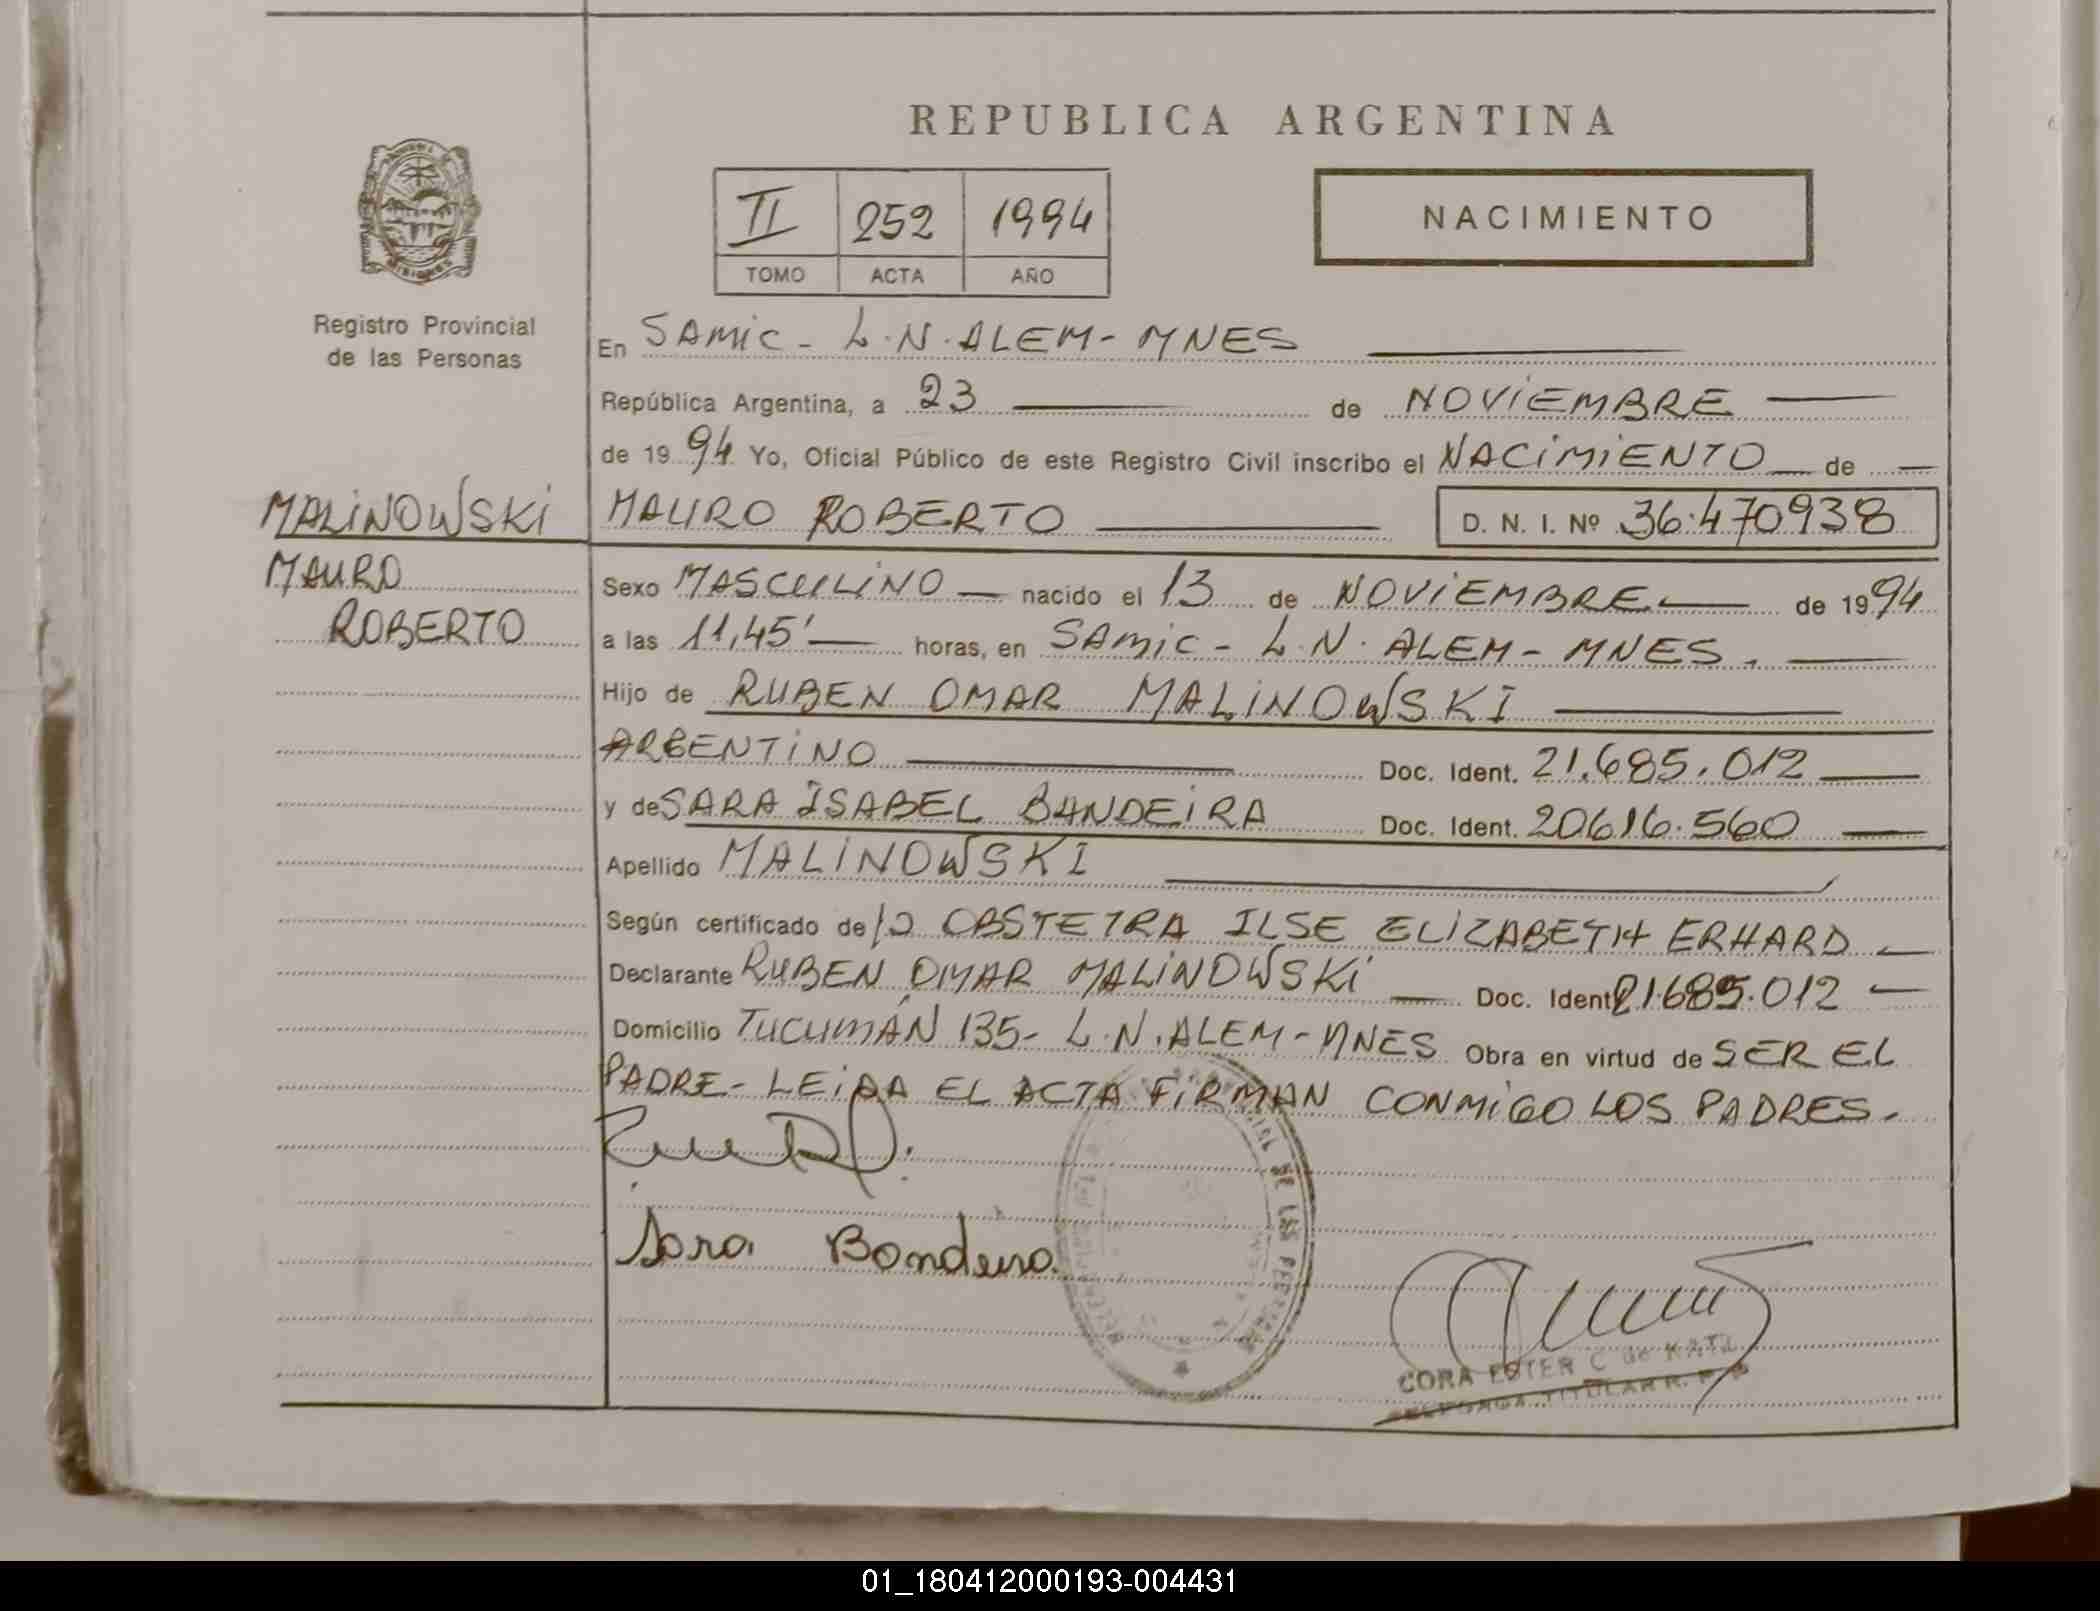 REPUBLICA ARGENTINA
MISIONES
II 252 1994
TOMO ACTA AÑO
NACIMIENTO
Registro Provincial
de las Personas
En SAMIC - L.N. ALEM - MNES
República Argentina, a 23 de NOVIEMBRE
de 1994 Yo, Oficial Público de este Registro Civil inscribo el NACIMIENTO de
MALINOWSKI MAURO ROBERTO D. N. I. Nº 36.470938
MAURO
ROBERTO
Sexo MASCULINO nacido el 13 de NOVIEMBRE de 1994
a las 11,45' horas, en SAMIC - L.N. ALEM - MNES.
Hijo de RUBEN OMAR MALINOWSKI
ARGENTINO Doc. Ident. 21.685.012
y de SARA ISABEL BANDEIRA Doc. Ident. 20616.560
Apellido MALINOWSKI
Según certificado de la OBSTETRA ILSE ELIZABETH ERHARD
Declarante RUBEN OMAR MALINOWSKI Doc. Ident. 21.685.012
Domicilio TUCUMÁN 135 - L.N. ALEM - MNES Obra en virtud de SER EL
PADRE - LEIDA EL ACTA FIRMAN CONMIGO LOS PADRES.
Sara Bandeira
DE LAS PERSONAS
CORA ESTER C de KATZ
TITULAR R. P. P.
01_180412000193-004431